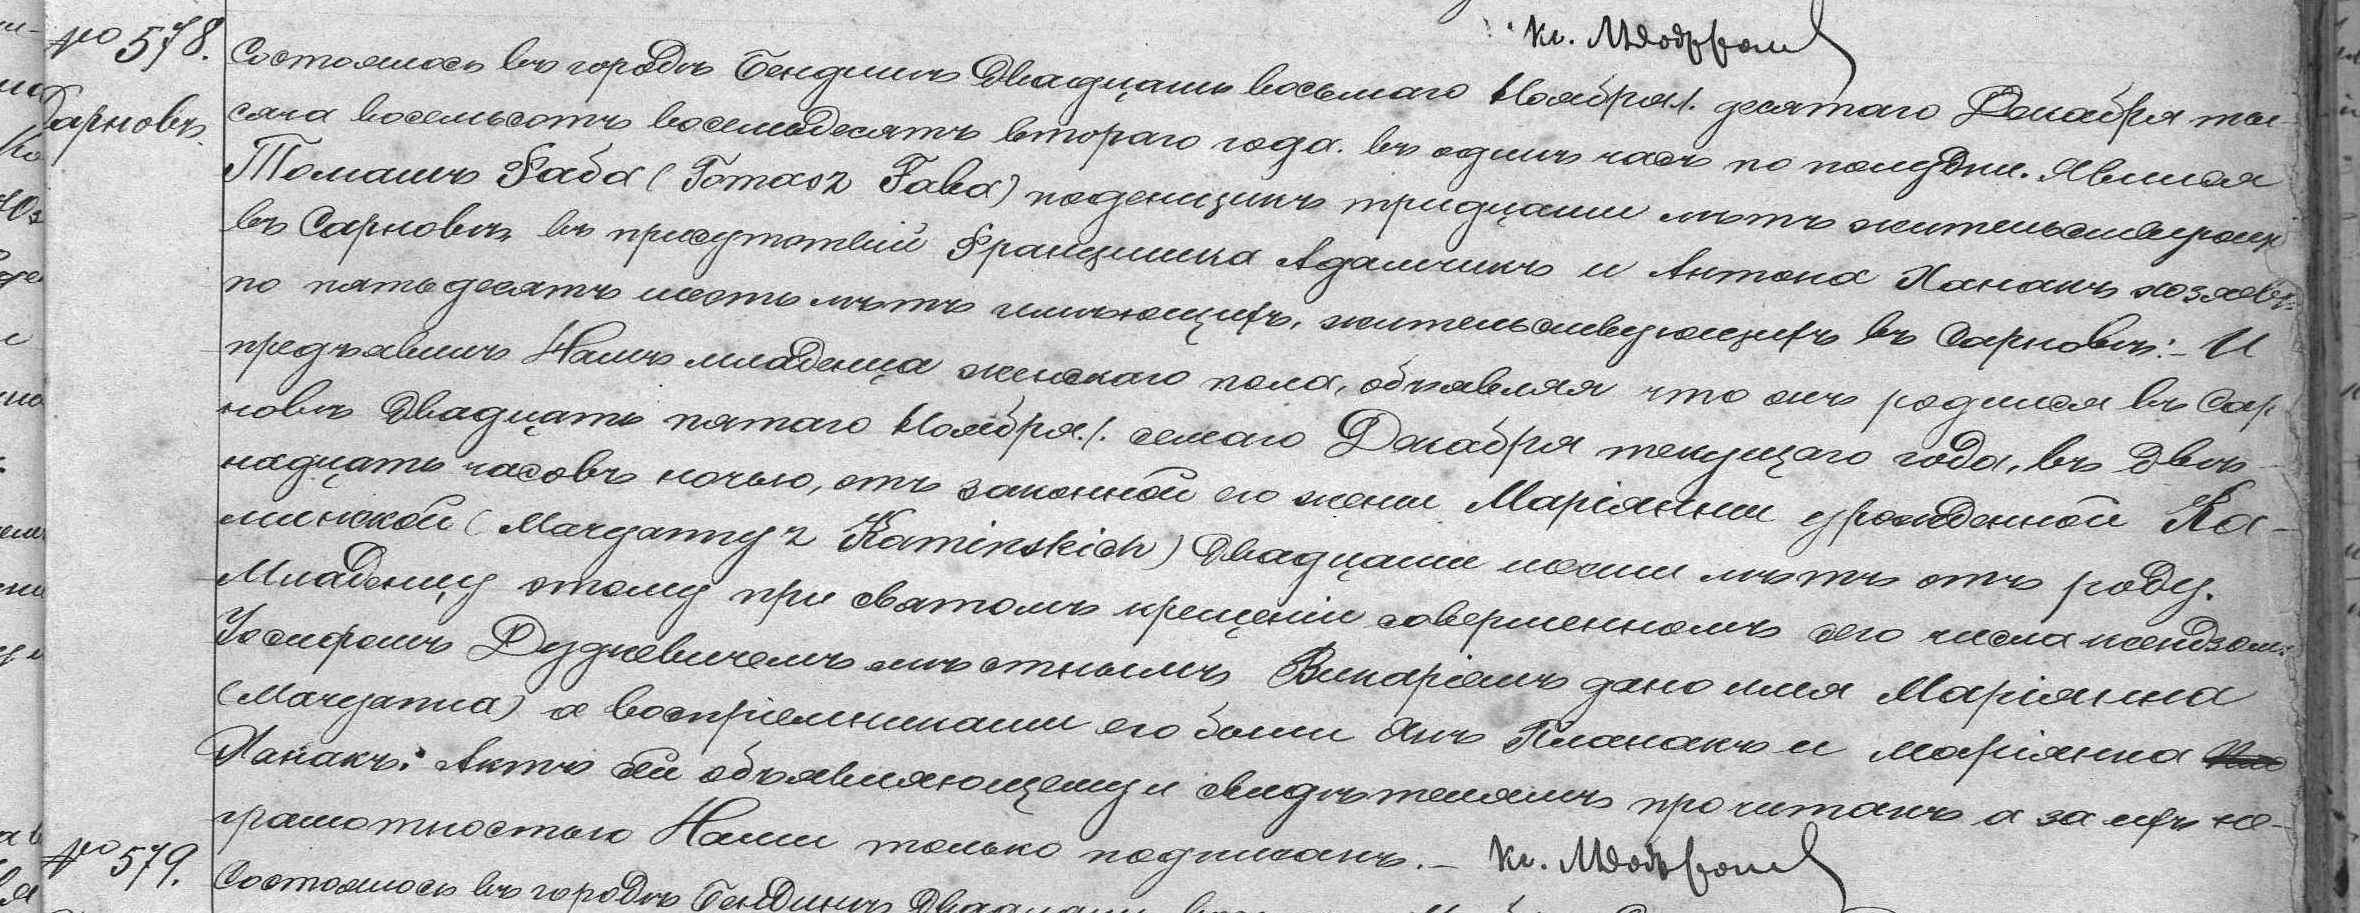 № 578.
Сарновъ.
Состоялось въ городѣ Бендинѣ Двадцать восьмаго Ноября /. десятаго Декабря ты-
сяча восемьсотъ восемьдесятъ втораго года. въ одинъ часъ по полудни. Явился
Томашъ Фаба (Tomasz Faba) поденщикъ тридцати лѣтъ жительствующій
въ Сарновѣ, въ присутствіи Францишка Адамчикъ и Антона Ханакъ хозяевъ
по пятьдесятъ шесть лѣтъ имѣющихъ, жительствующихъ въ Сарновѣ:- И
предъявилъ Намъ младенца женскаго пола, объявляя что онъ родился въ Сар
новѣ Двадцать пятаго Ноября /. седмаго Декабря текущаго года, въ Двѣ-
надцать часовъ ночью, отъ законной его жены Маріянны урожденной Ка-
минской (Maryanny z Kaminskich) Двадцати шести лѣтъ отъ роду.
Младенцу этому при святомъ крещеніи совершенномъ сего числа ксендзомъ
Іосифомъ Дудкевичемъ мѣстнымъ Викаріемъ дано имя Маріянна
(Maryanna) а воспріемниками его были Янъ Планакъ и Маріянна
Ханакъ. Актъ сей объявляющему и свидѣтелямъ прочитанъ а за ихъ не-
грамотностью Нами только подписанъ.-
№ 579.
Состоялось въ городѣ Бендинѣ Двадцать